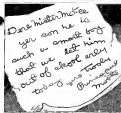 Dere Mister McFee
yer son he is
such a smart boy
that we let him
out of skool erly
today yers trooly
Prinsipul
Moots